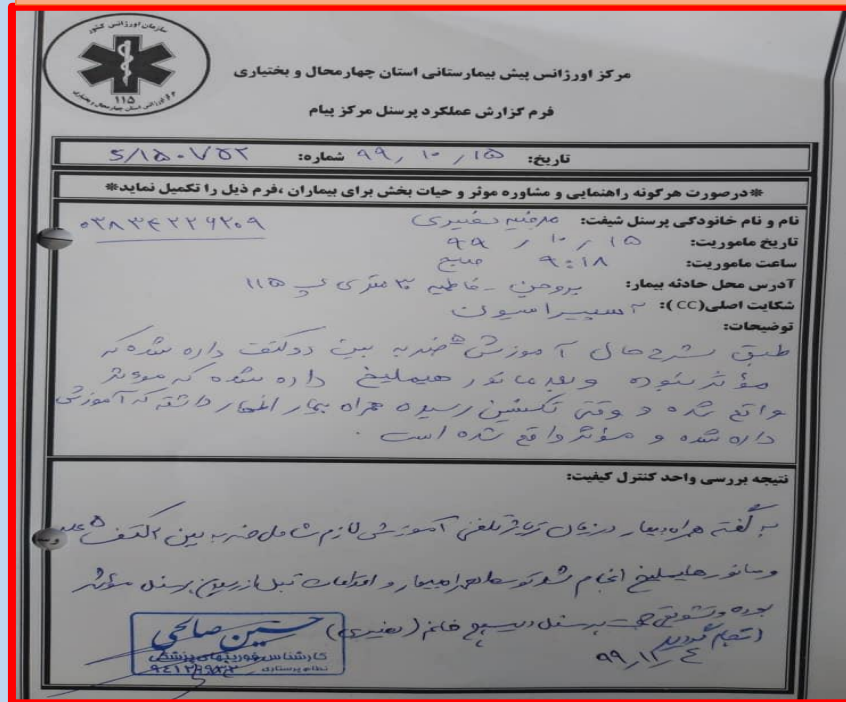 سازمان اورژانس کشور
۱۱۵
مرکز اورژانس پیش بیمارستانی استان چهارمحال و بختیاری
فرم گزارش عملکرد پرسنل مرکز پیام
تاریخ: ۹۹/۱۰/۱۵ شماره:
*درصورت هرگونه راهنمایی و مشاوره موثر و حیات بخش برای بیماران ،فرم ذیل را تکمیل نماید*
نام و نام خانوادگی پرسنل شیفت: مرضیه
تاریخ ماموریت: ۹۹/۱۰/۱۵
ساعت ماموریت: ۹:۱۸ صبح
آدرس محل حادثه بیمار: بروجن - فاطمیه ۳۰ متری پ ۱۱۵
شکایت اصلی(CC): آسپیراسیون
توضیحات:
طبق شرح حال آموزش ۵ ضربه بین دو کتف داده شده که
مؤثر نبوده و بعد مانور هیملیخ داده شده که موثر
واقع شده و وقتی تکنسین رسیده همراه بیمار اظهار داشته که آموزش
داده شده و مؤثر واقع شده است.
نتیجه بررسی واحد کنترل کیفیت:
به گفته همراه بیمار در زمان تریاژ تلفنی آموزش لازم شامل ضربه بین ۲ کتف ۵ عدد
و مانور هایملیخ انجام شد توسط همراه بیمار و اقدامات قبل از رسیدن پرسنل مؤثر
بوده و تشویقی جهت پرسنل دیسپچ خانم
انجام گردید
حسین صالحی
کارشناس فوریتهای پزشکی
نظام پرستاری